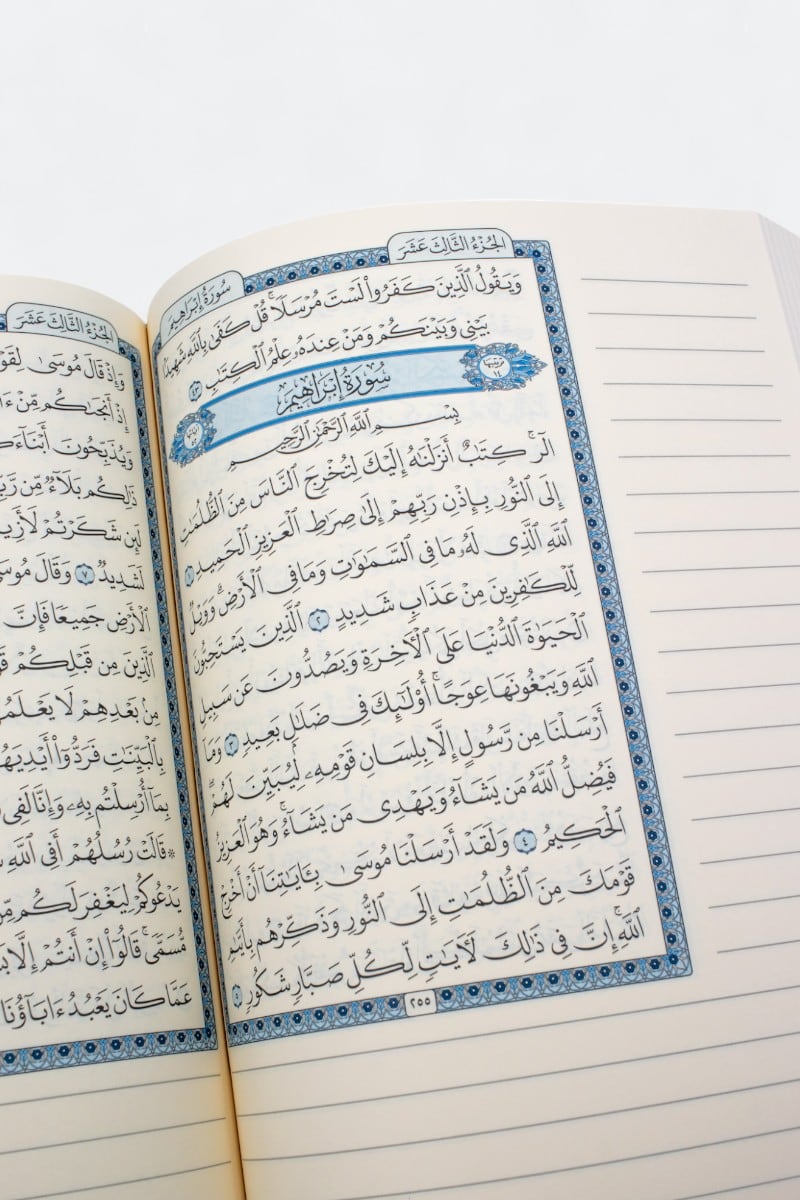 الجُزْءُ الثَّالِثَ عَشَرَ
سُورَةُ إِبْرَاهِيمَ
وَيَقُولُ ٱلَّذِينَ كَفَرُواْ لَسْتَ مُرْسَلًاۚ قُلْ كَفَىٰ بِٱللَّهِ شَهِيدًۢا
بَيْنِي وَبَيْنَكُمْ وَمَنْ عِندَهُۥ عِلْمُ ٱلْكِتَٰبِ ٤٣
تَرْتِيبُهَا ١٤ سُورَةُ إِبْرَاهِيمَ آيَاتُهَا ٥٢
بِسْمِ ٱللَّهِ ٱلرَّحْمَٰنِ ٱلرَّحِيمِ
الٓرۚ كِتَٰبٌ أَنزَلْنَٰهُ إِلَيْكَ لِتُخْرِجَ ٱلنَّاسَ مِنَ ٱلظُّلُمَٰتِ
إِلَى ٱلنُّورِ بِإِذْنِ رَبِّهِمْ إِلَىٰ صِرَٰطِ ٱلْعَزِيزِ ٱلْحَمِيدِ ١
ٱللَّهِ ٱلَّذِي لَهُۥ مَا فِي ٱلسَّمَٰوَٰتِ وَمَا فِي ٱلْأَرْضِۗ وَوَيْلٌ
لِّلْكَٰفِرِينَ مِنْ عَذَابٍ شَدِيدٍ ٢ ٱلَّذِينَ يَسْتَحِبُّونَ
ٱلْحَيَوٰةَ ٱلدُّنْيَا عَلَى ٱلْأٓخِرَةِ وَيَصُدُّونَ عَن سَبِيلِ
ٱللَّهِ وَيَبْغُونَهَا عِوَجًاۚ أُوْلَٰٓئِكَ فِي ضَلَٰلِۭ بَعِيدٍ ٣ وَمَآ
أَرْسَلْنَا مِن رَّسُولٍ إِلَّا بِلِسَانِ قَوْمِهِۦ لِيُبَيِّنَ لَهُمْۖ
فَيُضِلُّ ٱللَّهُ مَن يَشَآءُ وَيَهْدِي مَن يَشَآءُۚ وَهُوَ ٱلْعَزِيزُ
ٱلْحَكِيمُ ٤ وَلَقَدْ أَرْسَلْنَا مُوسَىٰ بِـَٔايَٰتِنَآ أَنْ أَخْرِجْ
قَوْمَكَ مِنَ ٱلظُّلُمَٰتِ إِلَى ٱلنُّورِ وَذَكِّرْهُم بِأَيَّىٰمِ
ٱللَّهِۚ إِنَّ فِي ذَٰلِكَ لَأٓيَٰتٍ لِّكُلِّ صَبَّارٍ شَكُورٍ ٥
٢٥٥
الجُزْءُ الثَّالِثَ عَشَرَ
وَإِذْ قَالَ مُوسَىٰ
إِذْ أَنجَىٰكُم مِّنْ
وَيُذَبِّحُونَ
ذَٰلِكُم بَلَآءٌ مِّن
لَئِن شَكَرْتُمْ
لَشَدِيدٌ ٧ وَقَالَ
ٱلْأَرْضِ جَمِيعًا فَإِنَّ
ٱلَّذِينَ مِن قَبْلِكُمْ
مِنۢ بَعْدِهِمْ لَا
بِٱلْبَيِّنَٰتِ فَرَدُّوٓاْ
بِمَآ أُرْسِلْتُم بِهِۦ وَإِنَّا لَفِي
قَالَتْ رُسُلُهُمْ أَفِي ٱللَّهِ
يَدْعُوكُمْ لِيَغْفِرَ لَكُم
مُّسَمًّىۚ قَالُوٓاْ إِنْ أَنتُمْ إِلَّا
عَمَّا كَانَ يَعْبُدُ ءَابَآؤُنَا